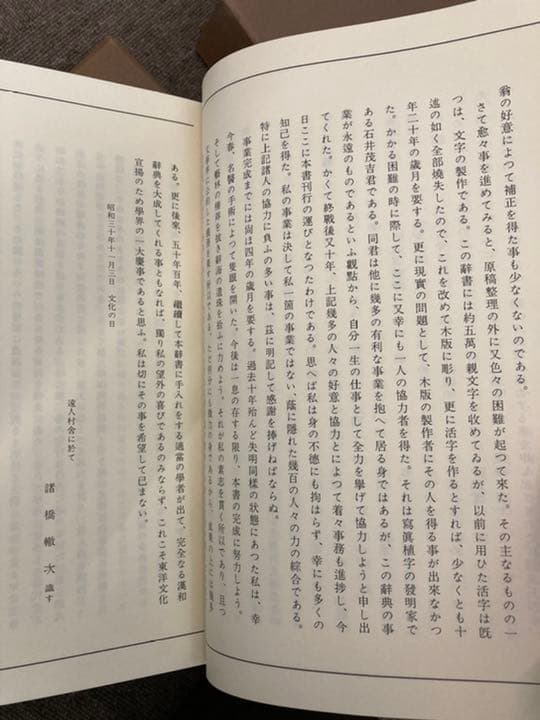 翁の好意によつて補正を得た事も少なくないのである。
さて愈々事を進めてみると、原稿整理の外に又色々の困難が起つて來た。その主なるものの一
つは、文字の製作である。この辭書には約五萬の親文字を收めてゐるが、以前に用ひた活字は既
述の如く全部燒失したので、これを改めて木版に彫り、更に活字を作るとすれば、少なくとも十
年二十年の歲月を要する。更に現實の問題として、木版の製作者にその人を得る事が出來なかつ
た。かかる困難の時に際して、ここに又幸にも一人の協力者を得た。それは寫眞植字の發明家で
ある石井茂吉君である。同君は他に幾多の有利な事業を抱へて居る身ではあるが、この辭典の事
業が永遠のものであるといふ觀點から、自分一生の仕事として全力を擧げて協力しようと申し出
てくれた。かくて終戰後又十年、上記幾多の人々の好意と協力とによつて着々事務も進捗し、今
日ここに本書刊行の運びとなつたわけである。思へば私は身の不德にも拘はらず、幸にも多くの
知己を得た。私の事業は決して私一箇の事業ではない、蔭に隱れた幾百の人々の力の綜合である。
特に上記諸人の協力に負ふの多い事は、茲に明記して感謝を捧げねばならぬ。
事業完成までには尙ほ四年の歲月を要する。過去十年殆んど失明同樣の狀態にあつた私は、幸
今春、名醫の手術によつて隻眼を開いた。今後は一息の存する限り、本書の完成に努力しよう。
そして藝林の榛莽を拔き辭海の遺珠を拾ふに力めよう。それが私の素志を貫く所以であり、且つ
ある。更に後來、五十年百年、繼續して本辭書に手入れをする適當の學者が出で、完全なる漢和
辭典を大成してくれる事ともなれば、獨り私の望外の喜びであるのみならず、これこそ東洋文化
宣揚のため學界の一大慶事であると思ふ。私は切にその事を希望して已まない。
昭和三十年十一月三日 文化の日
遠人村舍に於て
諸橋轍次 識す